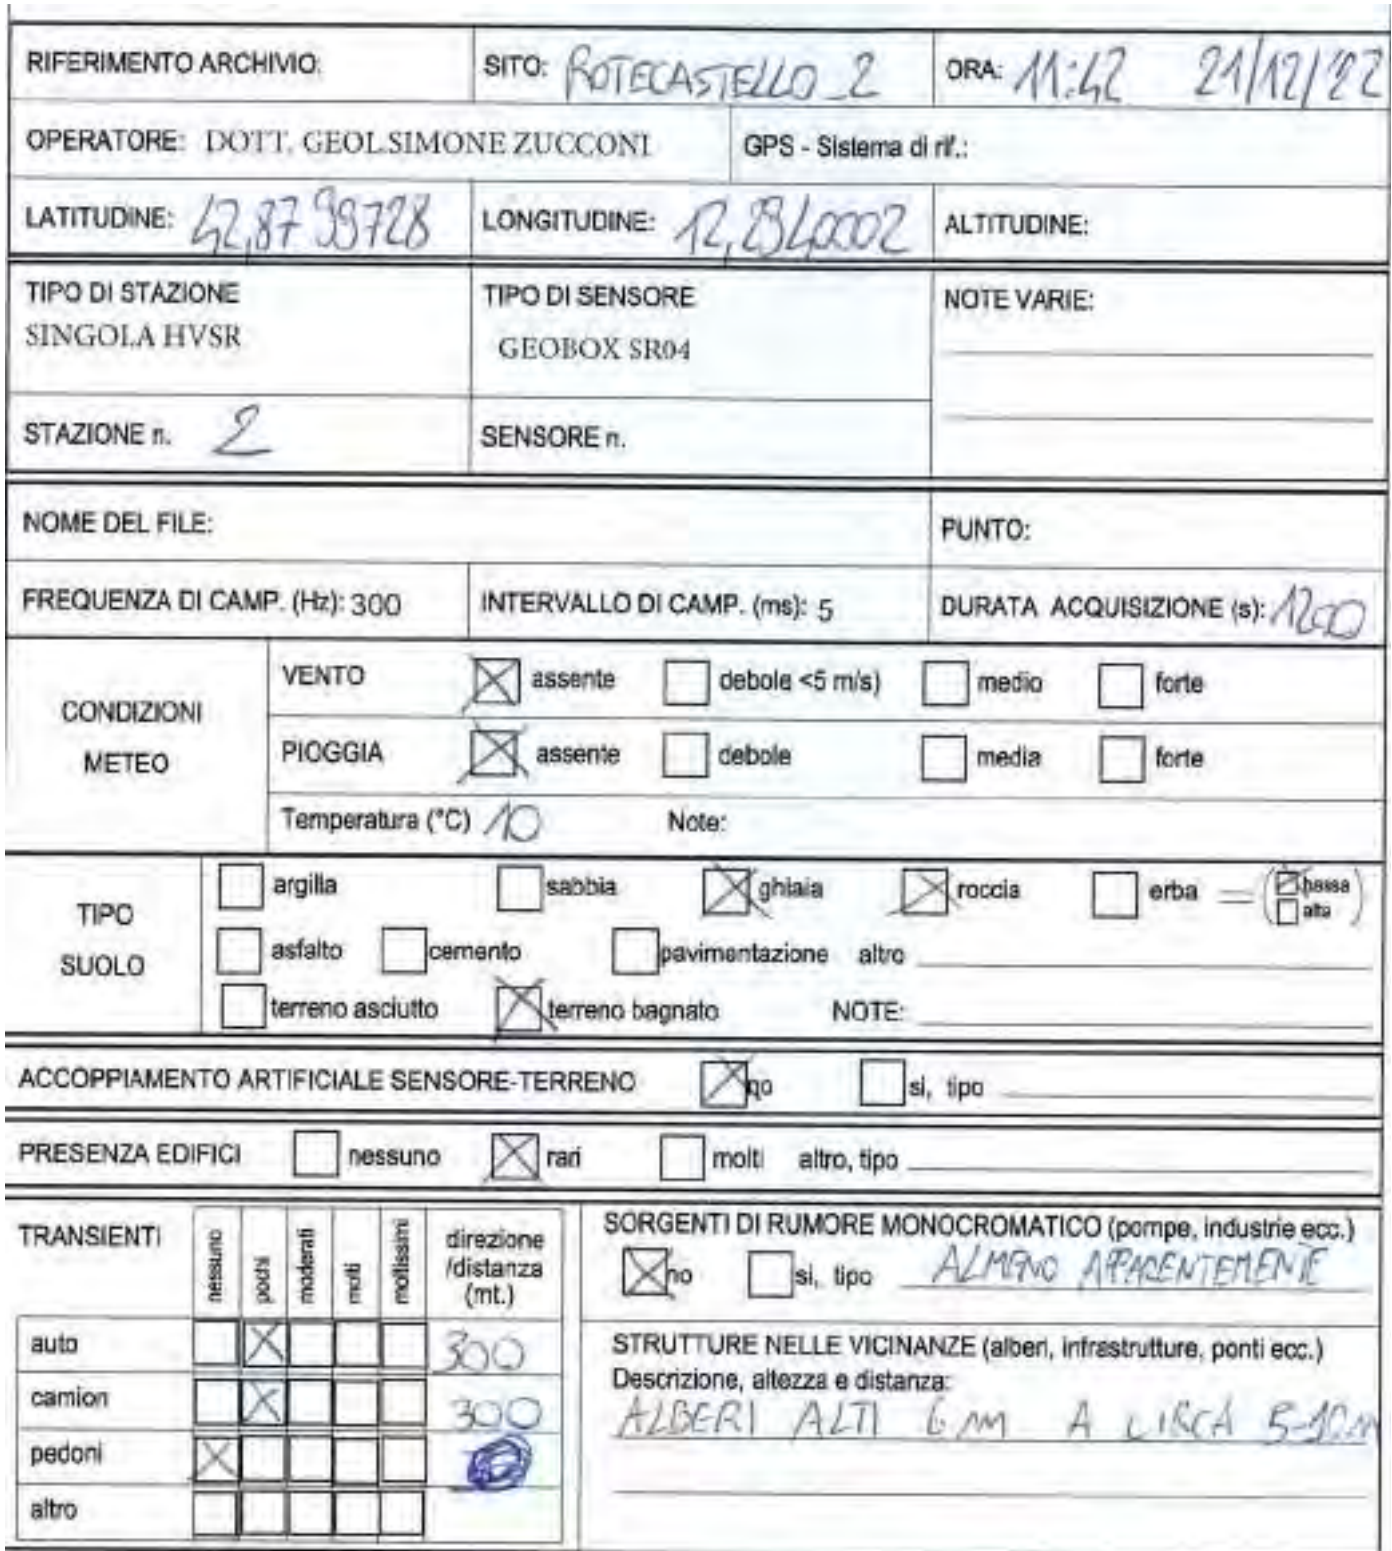 RIFERIMENTO ARCHIVIO: SITO: ROTECASTELLO_2 ORA: 11:42 21/12/22
OPERATORE: DOTT. GEOL.SIMONE ZUCCONI GPS - Sistema di rif.:
LATITUDINE: 42,8799728 LONGITUDINE: 12,2940002 ALTITUDINE:
TIPO DI STAZIONE TIPO DI SENSORE NOTE VARIE:
SINGOLA HVSR GEOBOX SR04
STAZIONE n. 2 SENSORE n.
NOME DEL FILE: PUNTO:
FREQUENZA DI CAMP. (Hz): 300 INTERVALLO DI CAMP. (ms): 5 DURATA ACQUISIZIONE (s): 1200
CONDIZIONI METEO
VENTO assente debole <5 m/s) medio forte
PIOGGIA assente debole media forte
Temperatura (°C) 10 Note:
TIPO SUOLO
argilla sabbia ghiaia roccia erba = (bassa alta)
asfalto cemento pavimentazione altro
terreno asciutto terreno bagnato NOTE:
ACCOPPIAMENTO ARTIFICIALE SENSORE-TERRENO no si, tipo
PRESENZA EDIFICI nessuno rari molti altro, tipo
TRANSIENTI nessuno pochi moderati molti moltissimi direzione /distanza (mt.)
auto 300
camion 300
pedoni
altro
SORGENTI DI RUMORE MONOCROMATICO (pompe, industrie ecc.)
no si, tipo ALMENO APPARENTEMENTE
STRUTTURE NELLE VICINANZE (alberi, infrastrutture, ponti ecc.)
Descrizione, altezza e distanza:
ALBERI ALTI 6 m A CIRCA 5-10 m